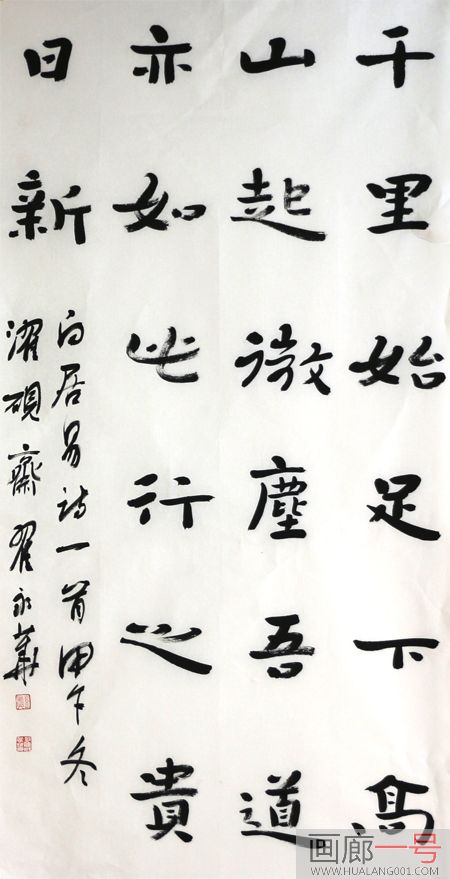 千里始足下高
山起微塵吾道
亦如此行之貴
日新
白居易詩一首甲午冬
濯硯齋翟永華
画廊一号
WWW.HUALANG001.COM